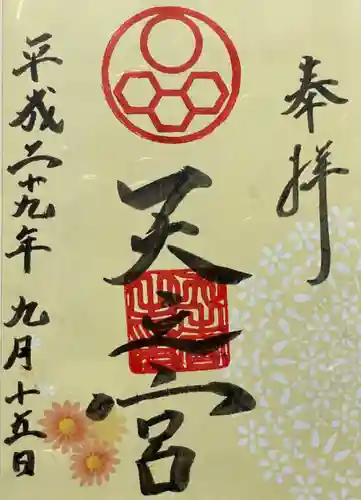 奉拝
天之宮
平成二十九年九月十五日